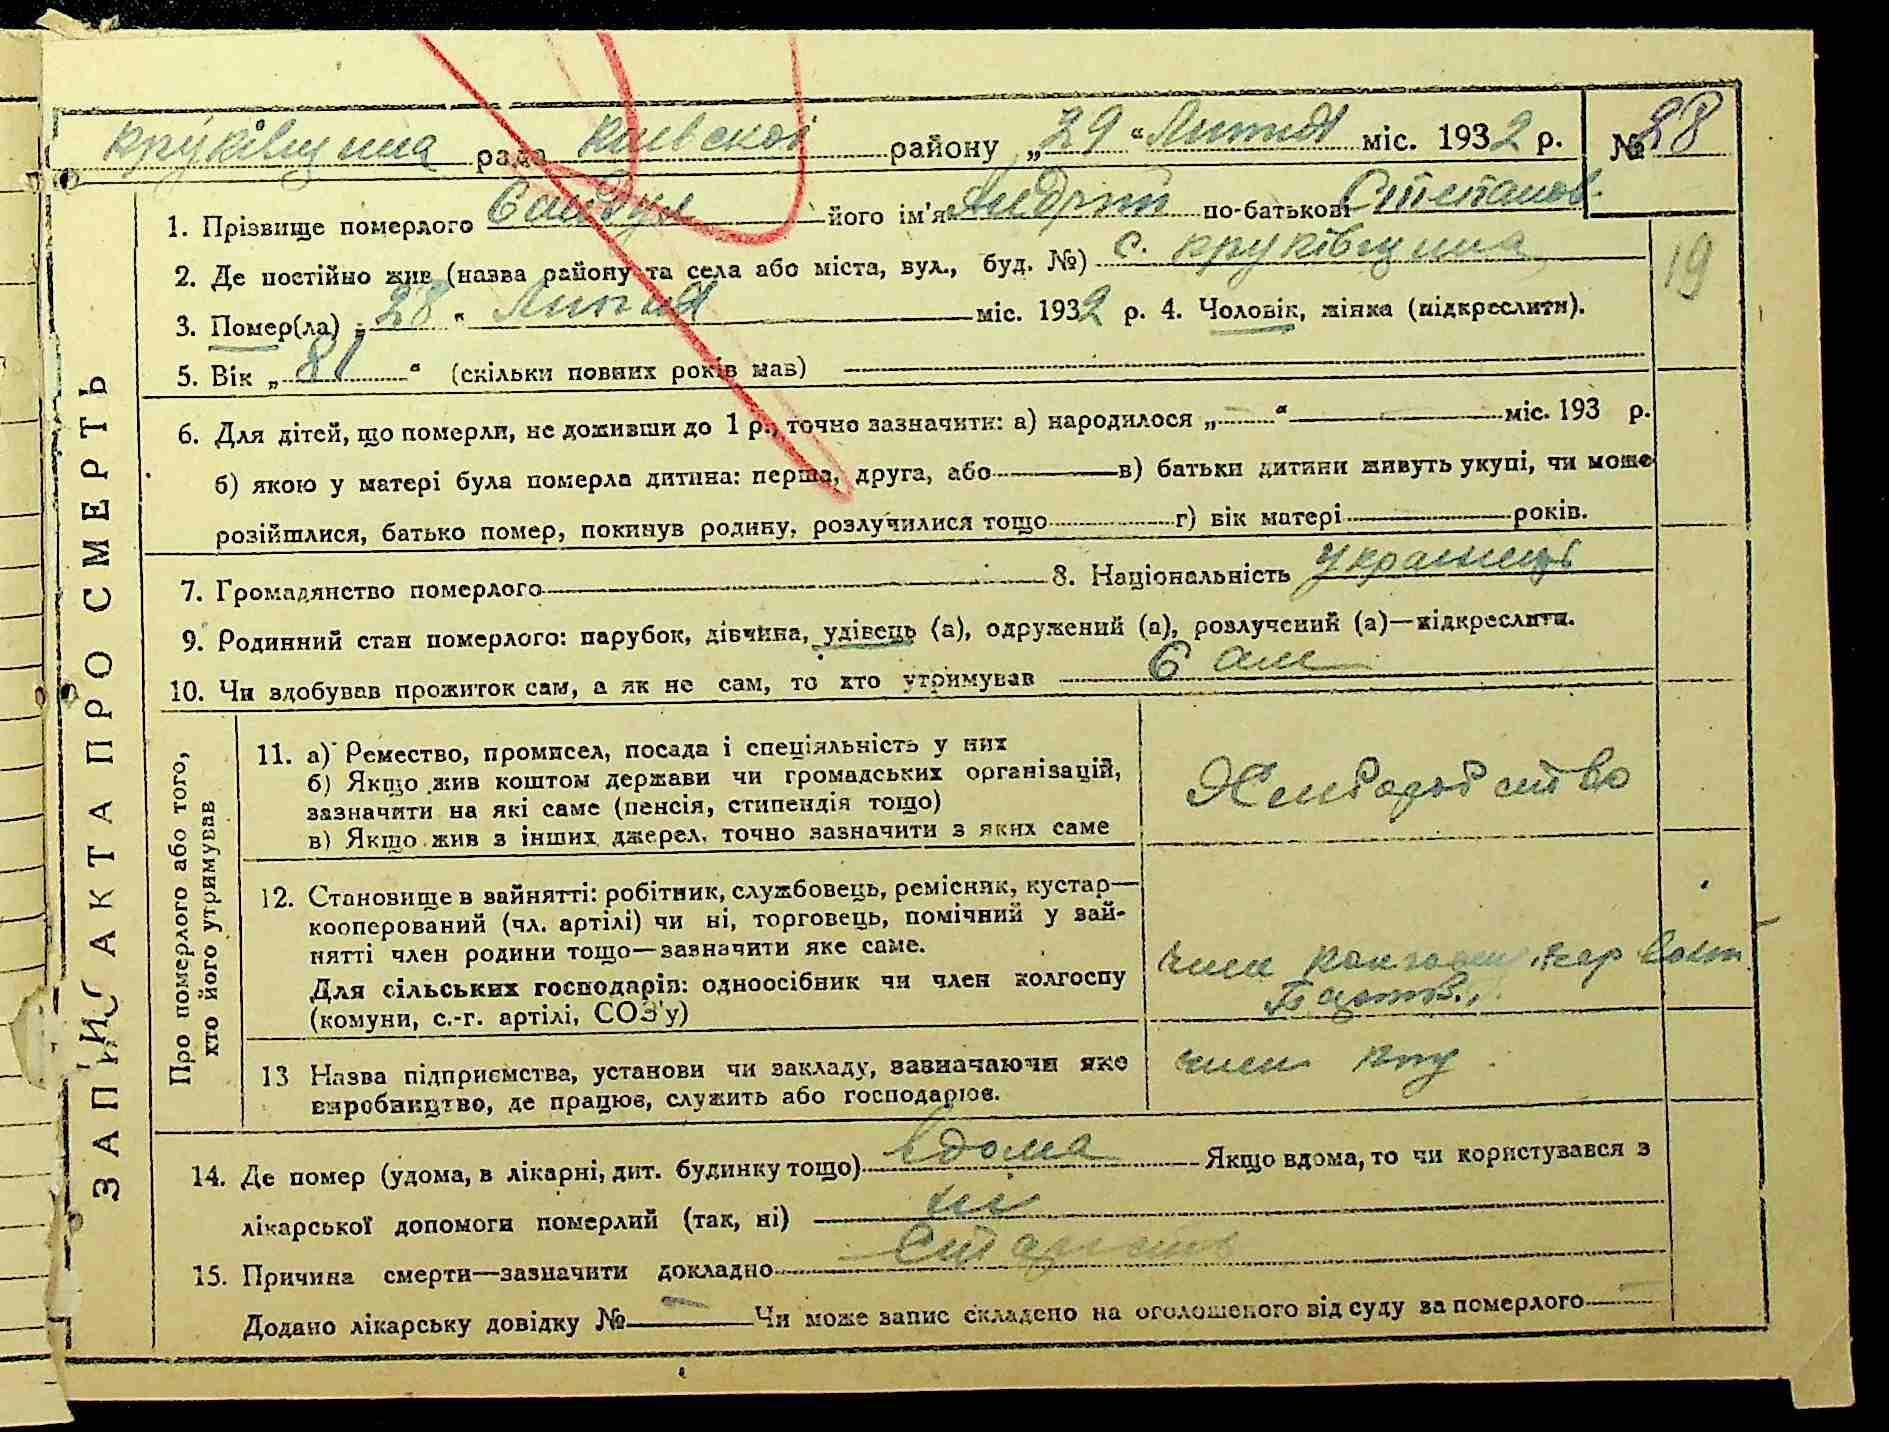 Круківщина рада Киевскої району „29“ Липня міс. 1932 р. № 28
1. Прізвище померлого його ім'я Андрій по-батькові Степанов.
2. Де постійно жив (назва району та села або міста, вул., буд. №) с. Круківщина
19
3. Помер(ла) „28“ Липня міс. 1932 р. 4. Чоловік, жінка (підкреслити).
5. Вік „81“ (скільки повних років мав)
6. Для дітей, що померли, не доживши до 1 р., точно зазначити: а) народилося „—“ — міс. 193 р.
б) якою у матері була померла дитина: перша, друга, або в) батьки дитини живуть укупі, чи може
розійшлися, батько помер, покинув родину, розлучилися тощо г) вік матері років.
7. Громадянство померлого 8. Національність Українець
9. Родинний стан померлого: парубок, дівчина, удівець (а), одружений (а), розлучений (а)—підкреслити.
10. Чи здобував прожиток сам, а як не сам, то хто утримував Сам
ЗАПИС АКТА ПРО СМЕРТЬ
Про померлого або того,
хто його утримував
11. а) Ремество, промисел, посада і спеціяльність у них
б) Якщо жив коштом держави чи громадських організацій,
зазначити на які саме (пенсія, стипендія тощо)
в) Якщо жив з інших джерел, точно зазначити з яких саме
Хлібороб ство
12. Становище в зайнятті: робітник, службовець, ремісник, кустар—
кооперований (чл. артілі) чи ні, торговець, помічний у зай-
нятті член родини тощо—зазначити яке саме.
Для сільських господарів: одноосібник чи член колгоспу
(комуни, с.-г. артілі, СОЗ'у)
член
13 Назва підприємства, установи чи закладу, зазначаючи яке
виробництво, де працює, служить або господарює.
член
14. Де помер (удома, в лікарні, дит. будинку тощо) вдома Якщо вдома, то чи користувався з
лікарської допомоги померлий (так, ні) ні
15. Причина смерти—зазначити докладно Старість
Додано лікарську довідку № — Чи може запис складено на оголошеного від суду за померлого —